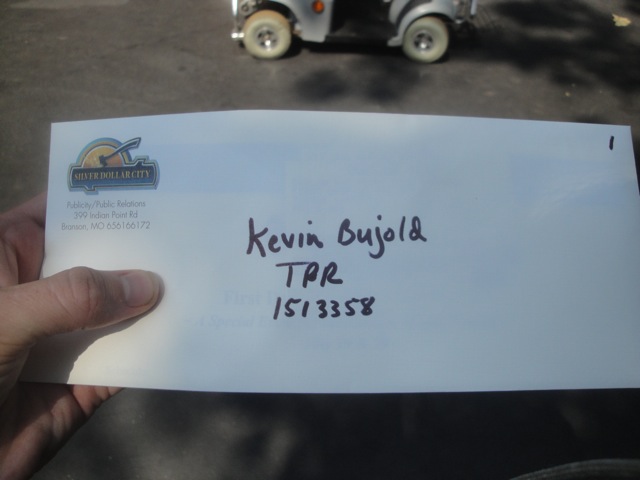 1
SILVER DOLLAR CITY
Publicity/Public Relations
399 Indian Point Rd
Branson, MO 656166172
Kevin Bujold
TPR
1513358
First
A Special